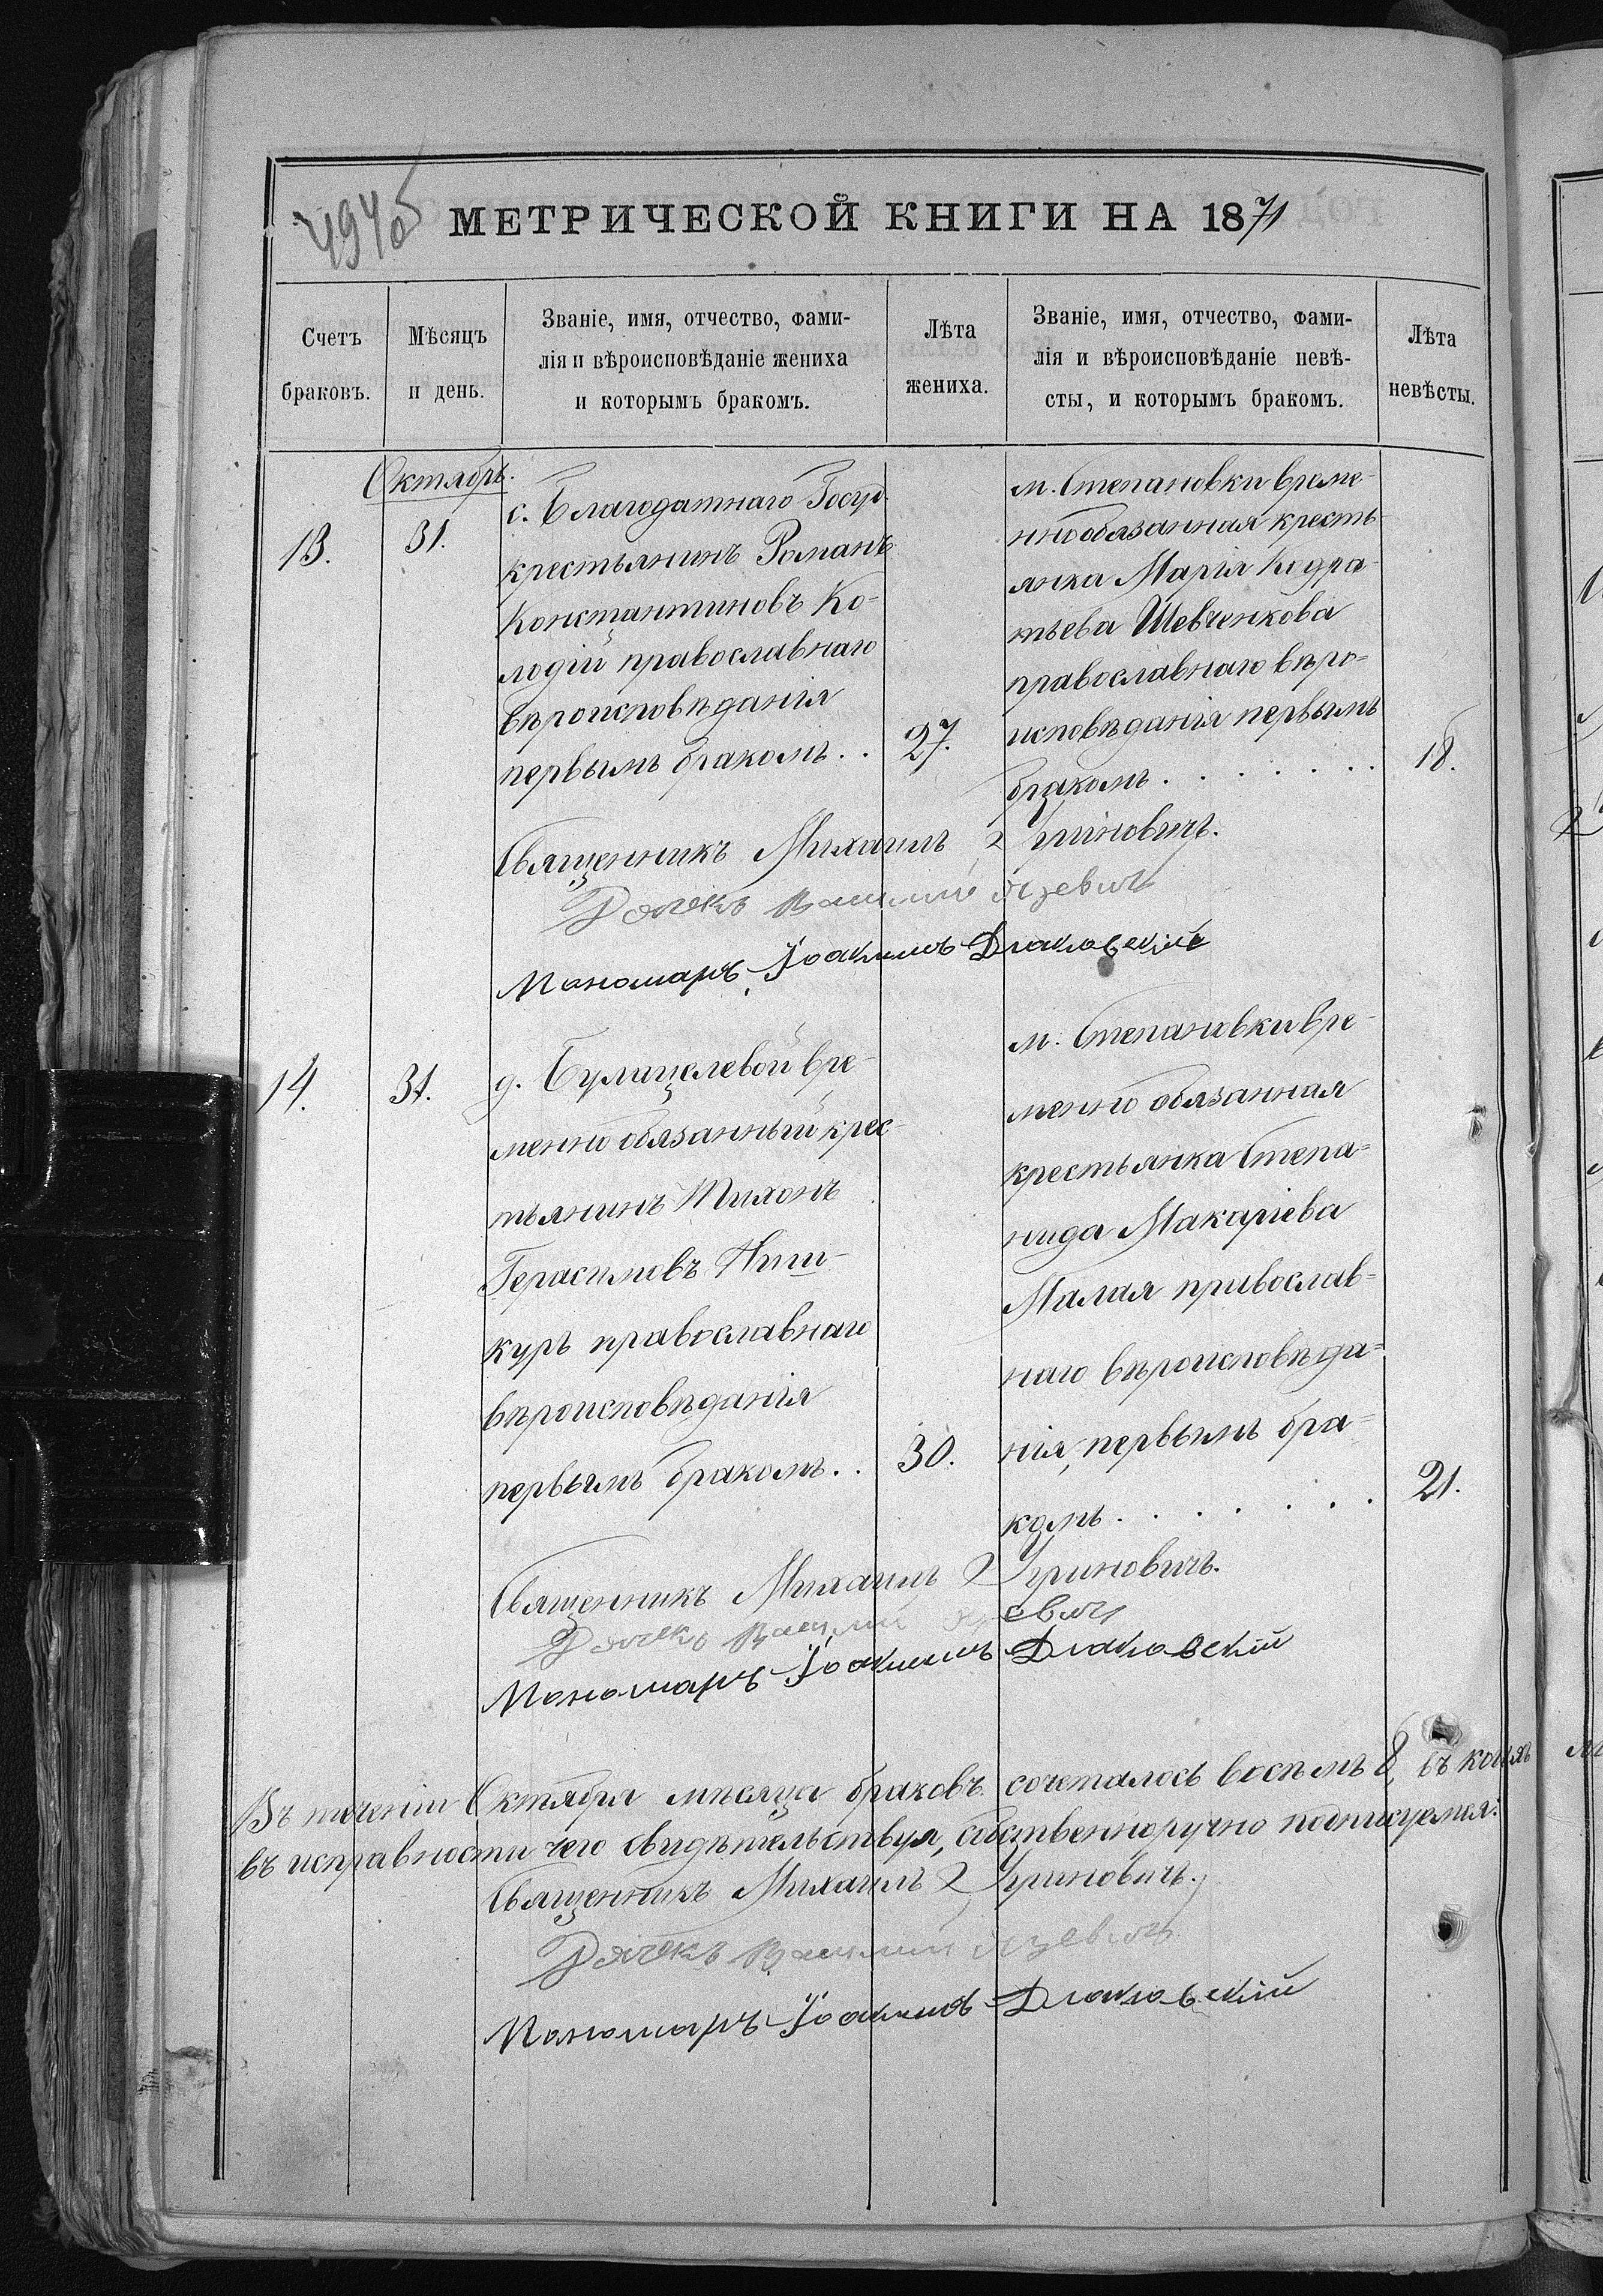 494об
МЕТРИЧЕСКОЙ КНИГИ НА 1871
Счетъ
браковъ.
Мѣсяцъ
и день.
Званіе, имя, отчество, фами-
лія и вѣроисповѣданіе жениха
и которымъ бракомъ.
Лѣта
жениха.
Званіе, имя, отчество, фами-
лія и вѣроисповѣданіе невѣ-
сты, и которымъ бракомъ.
Лѣта
невѣсты.
Октябрь.
13.
31.
с. Благодатнаго Госуд.
крестьянинъ Романъ
Константиновъ Ко-
лодій православнаго
вѣроисповѣданія
первымъ бракомъ. .
27.
м. Степановки време-
ннообязанная кресть-
янка Марія Кодра-
тьева Шевченкова
православнаго вѣро-
исповѣданія первымъ
бракомъ . . . . . . .
18.
Священникъ Михаилъ Угриновичъ.
Дячекъ Василий
Пономарь Іоакимъ Дlаковскій
14.
31.
д. Булицелевой вре-
менно обязанный крес-
тьянинъ Тихонъ
Герасимовъ Ниш-
куръ православнаго
вѣроисповѣданія
первымъ бракомъ. .
30.
м. Степановки вре-
менно обязанная
крестьянка Степа-
нида Макаріева
Малая православ-
наго вѣроисповѣда-
нія, первымъ бра-
комъ . . . . . . .
21.
Священникъ Михаилъ Угриновичъ.
Дячекъ Василий
Пономарь Іоакимъ Діаковскій
Въ теченіи Октября мѣсяца браковъ сочеталось восемь 8, въ коихъ
въ исправности чего свидѣтельствуя, собственноручно подписуемся:
Священникъ Михаилъ Угриновичъ.
Дячекъ Василий
Пономарь Іоакимъ Діаковскій